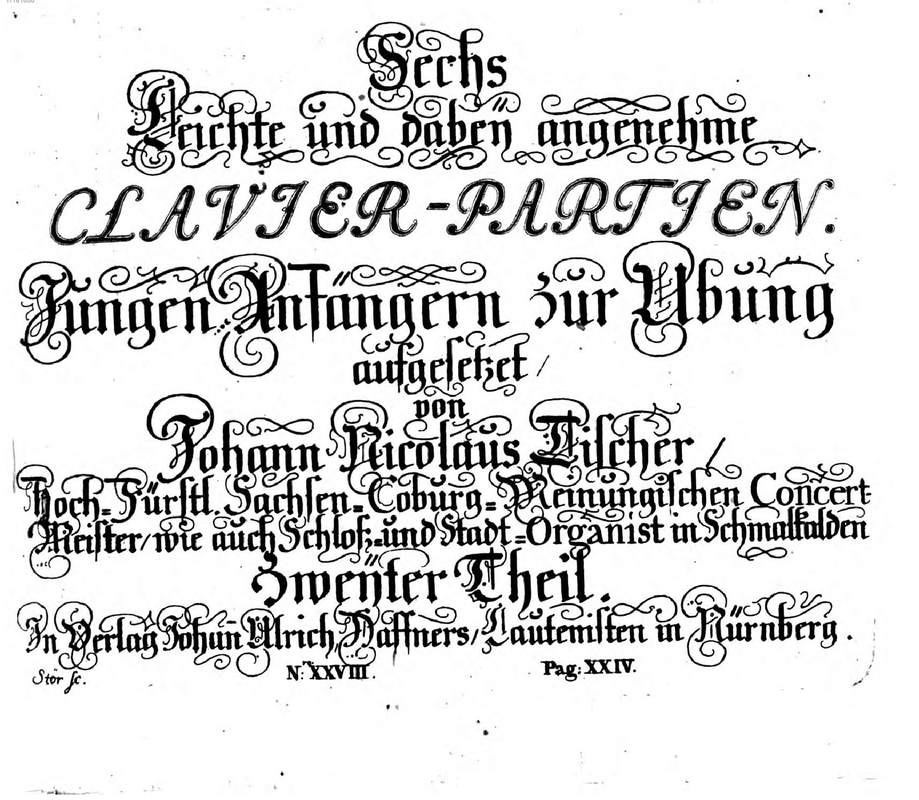 Sechs
Leichte und dabeÿ angenehme
CLAVIER-PARTIEN.
Jungen Anfängern zur Ubung
aufgesetzet /
von
Johann Nicolaus Tischer /
Hoch-Fürstl. Sachsen-Coburg-Meinungischen Concert
Meister/ wie auch Schloß-und Stadt-Organist in Schmalkalden
Zweÿter Theil.
In Verlag Johañ Ulrich Haffners/ Lautenisten in Nürnberg.
Stör sc.
N: XXVIII. Pag: XXIV.